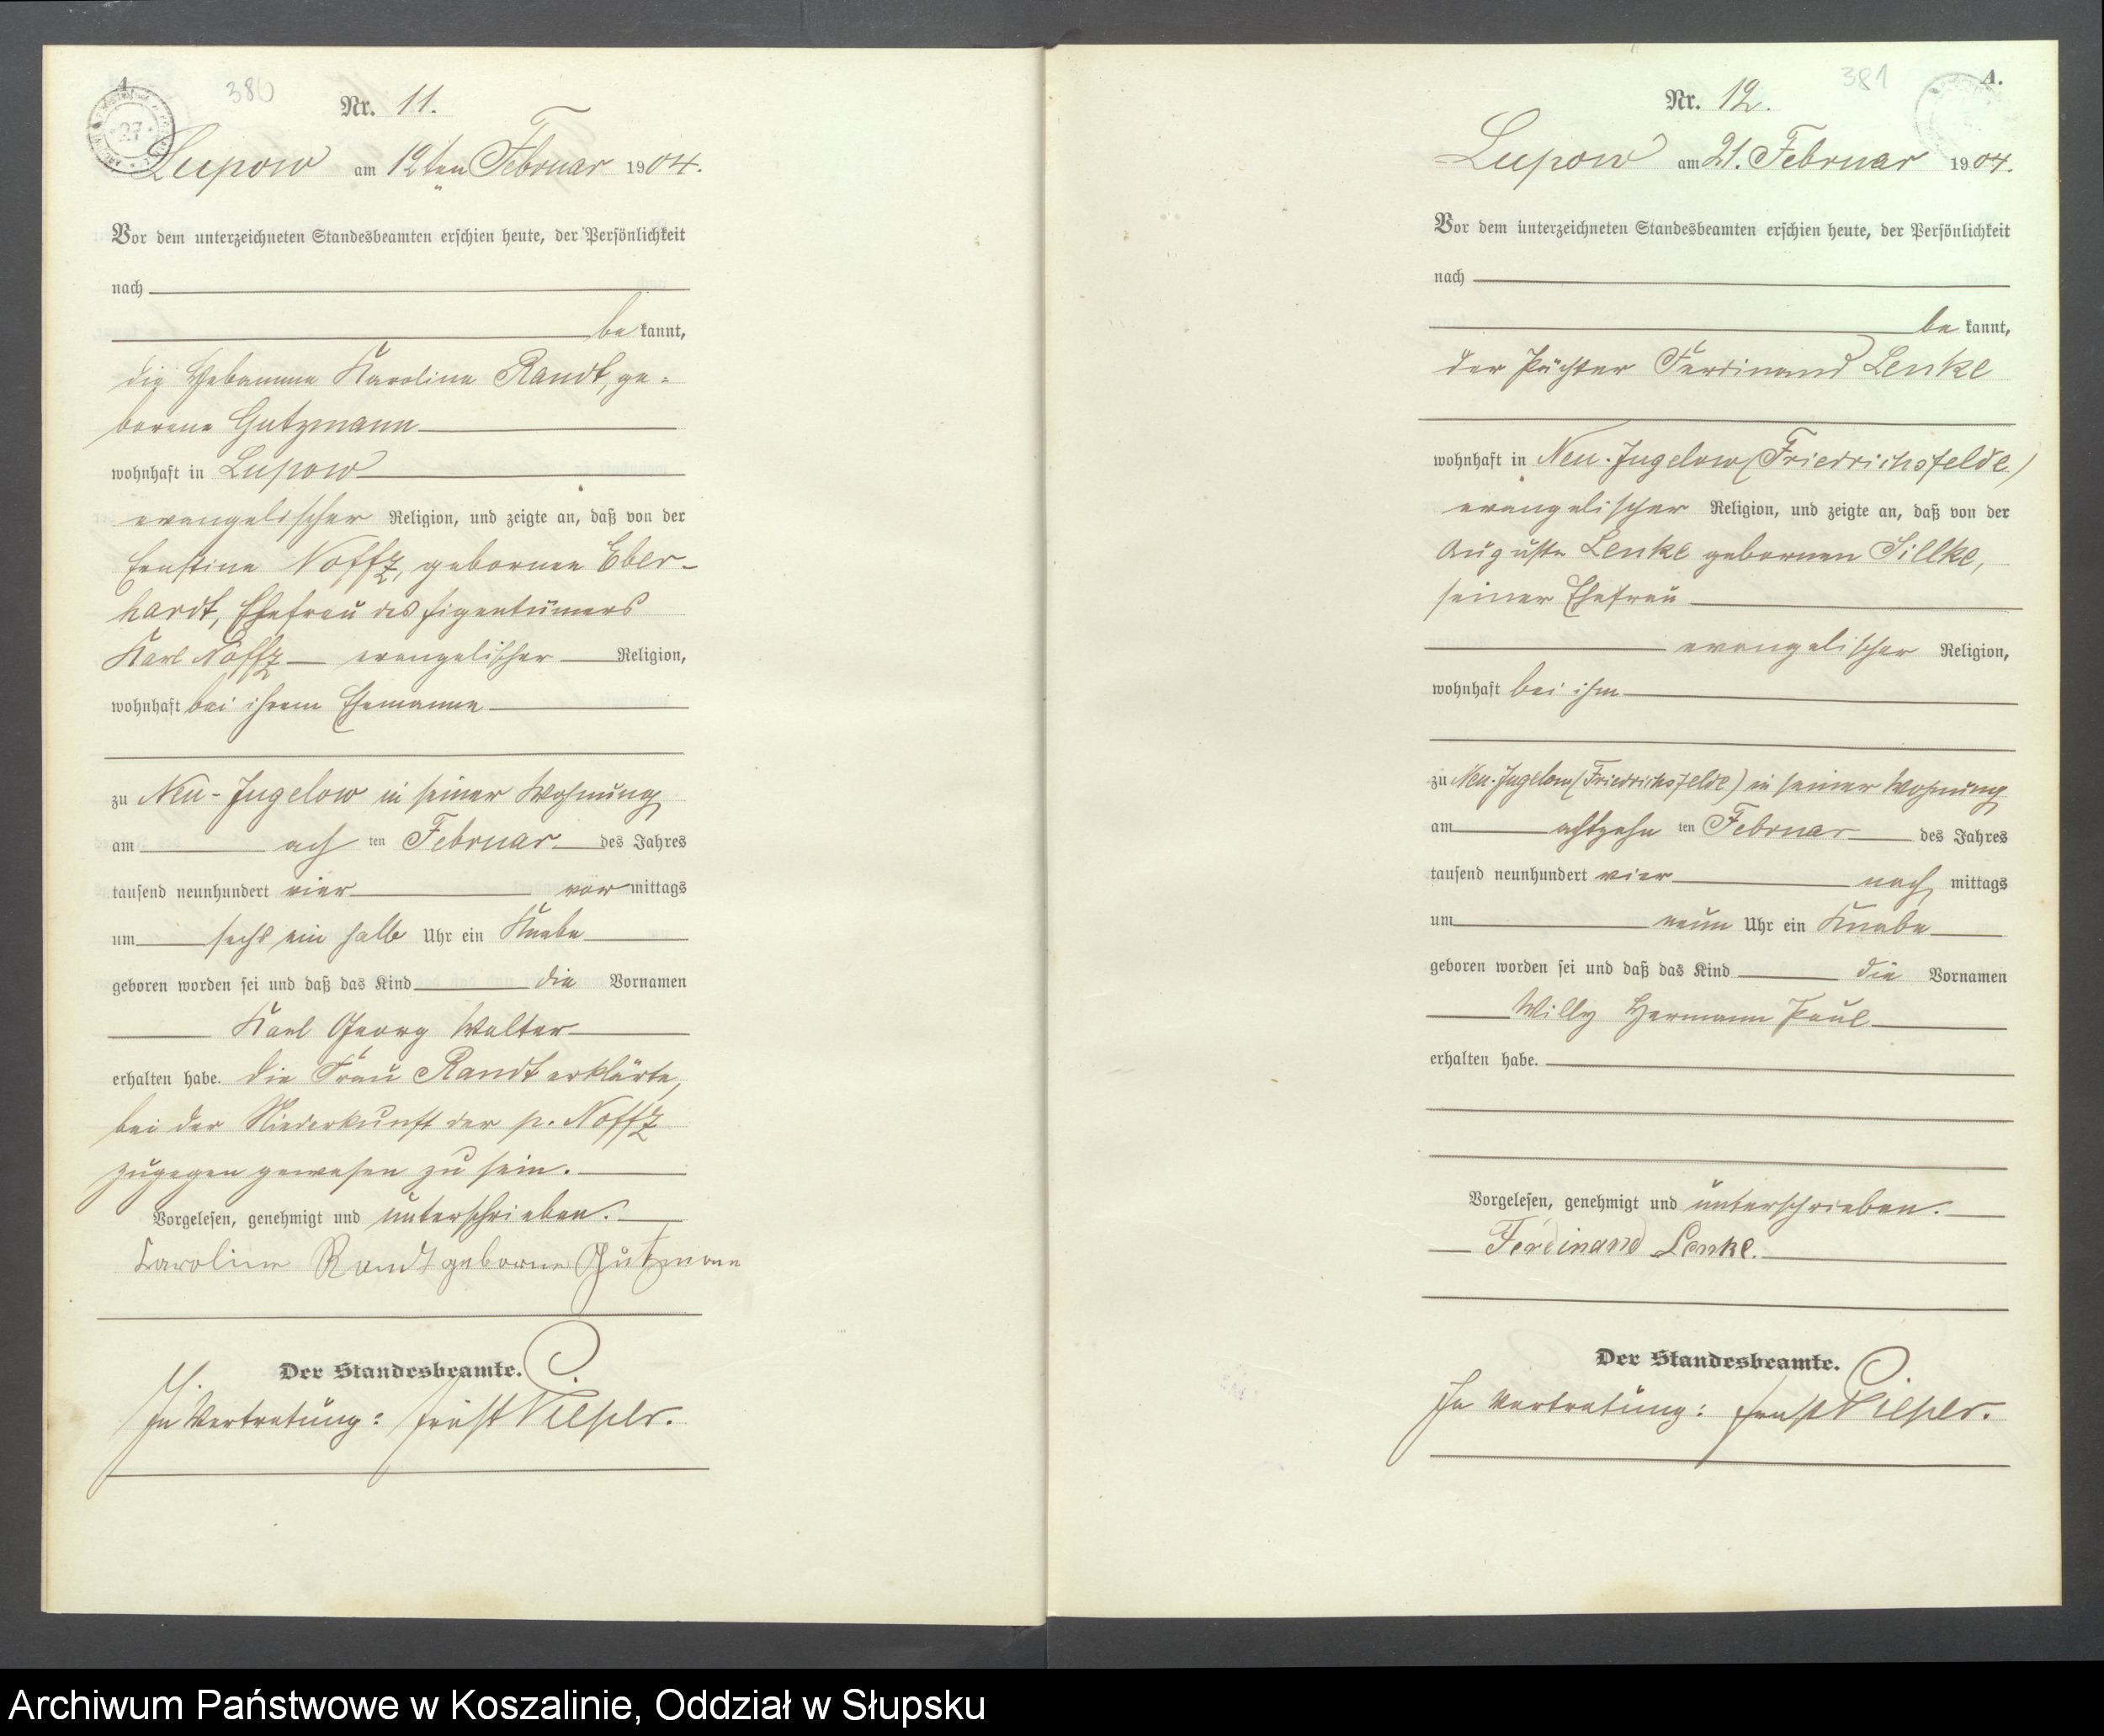 380
Nr. 11.
Lupow am 12ten Februar 1904.
Vor dem unterzeichneten Standesbeamten erschien heute, der Persönlichkeit
nach
be kannt,
die Hebamme Karoline Randt, ge-
borene Gutzmann
wohnhaft in Lupow
evangelischer Religion, und zeigte an, daß von der
Ernstine Noffz, gebornen Eber-
hardt, Ehefrau des Eigentümers
Karl Noffz evangelischer Religion,
wohnhaft bei ihrem Ehemanne
zu Neu-Jugelow in seiner Wohnung
am ach ten Februar des Jahres
tausend neunhundert vier vor mittags
um sechs ein halb Uhr ein Knabe
geboren worden sei und daß das Kind die Vornamen
Karl Georg Walter
erhalten habe. Die Frau Randt erklärte,
bei der Niederkunft der p. Noffz
zugegen gewesen zu sein.
Vorgelesen, genehmigt und unterschrieben.
Karoline Randt geborne Gutzmann
Der Standesbeamte.
In Vertretung: Ernst
381
A.
Nr. 12.
Lupow am 21. Februar 1904.
Vor dem unterzeichneten Standesbeamten erschien heute, der Persönlichkeit
nach
be kannt,
der Pächter Ferdinand Lenke
wohnhaft in Neu-Jugelow (Friedrichsfelde)
evangelischer Religion, und zeigte an, daß von der
Auguste Lenke gebornen Sillke,
seiner Ehefrau
evangelischer Religion,
wohnhaft bei ihm
zu Neu-Jugelow (Friedrichsfelde) in seiner Wohnung
am achtzehn ten Februar des Jahres
tausend neunhundert vier nach mittags
um neun Uhr ein Knabe
geboren worden sei und daß das Kind die Vornamen
Willy Hermann Paul
erhalten habe.
Vorgelesen, genehmigt und unterschrieben.
Ferdinand Lenke.
Der Standesbeamte.
In Vertretung: Ernst
Archiwum Państwowe w Koszalinie, Oddział w Słupsku